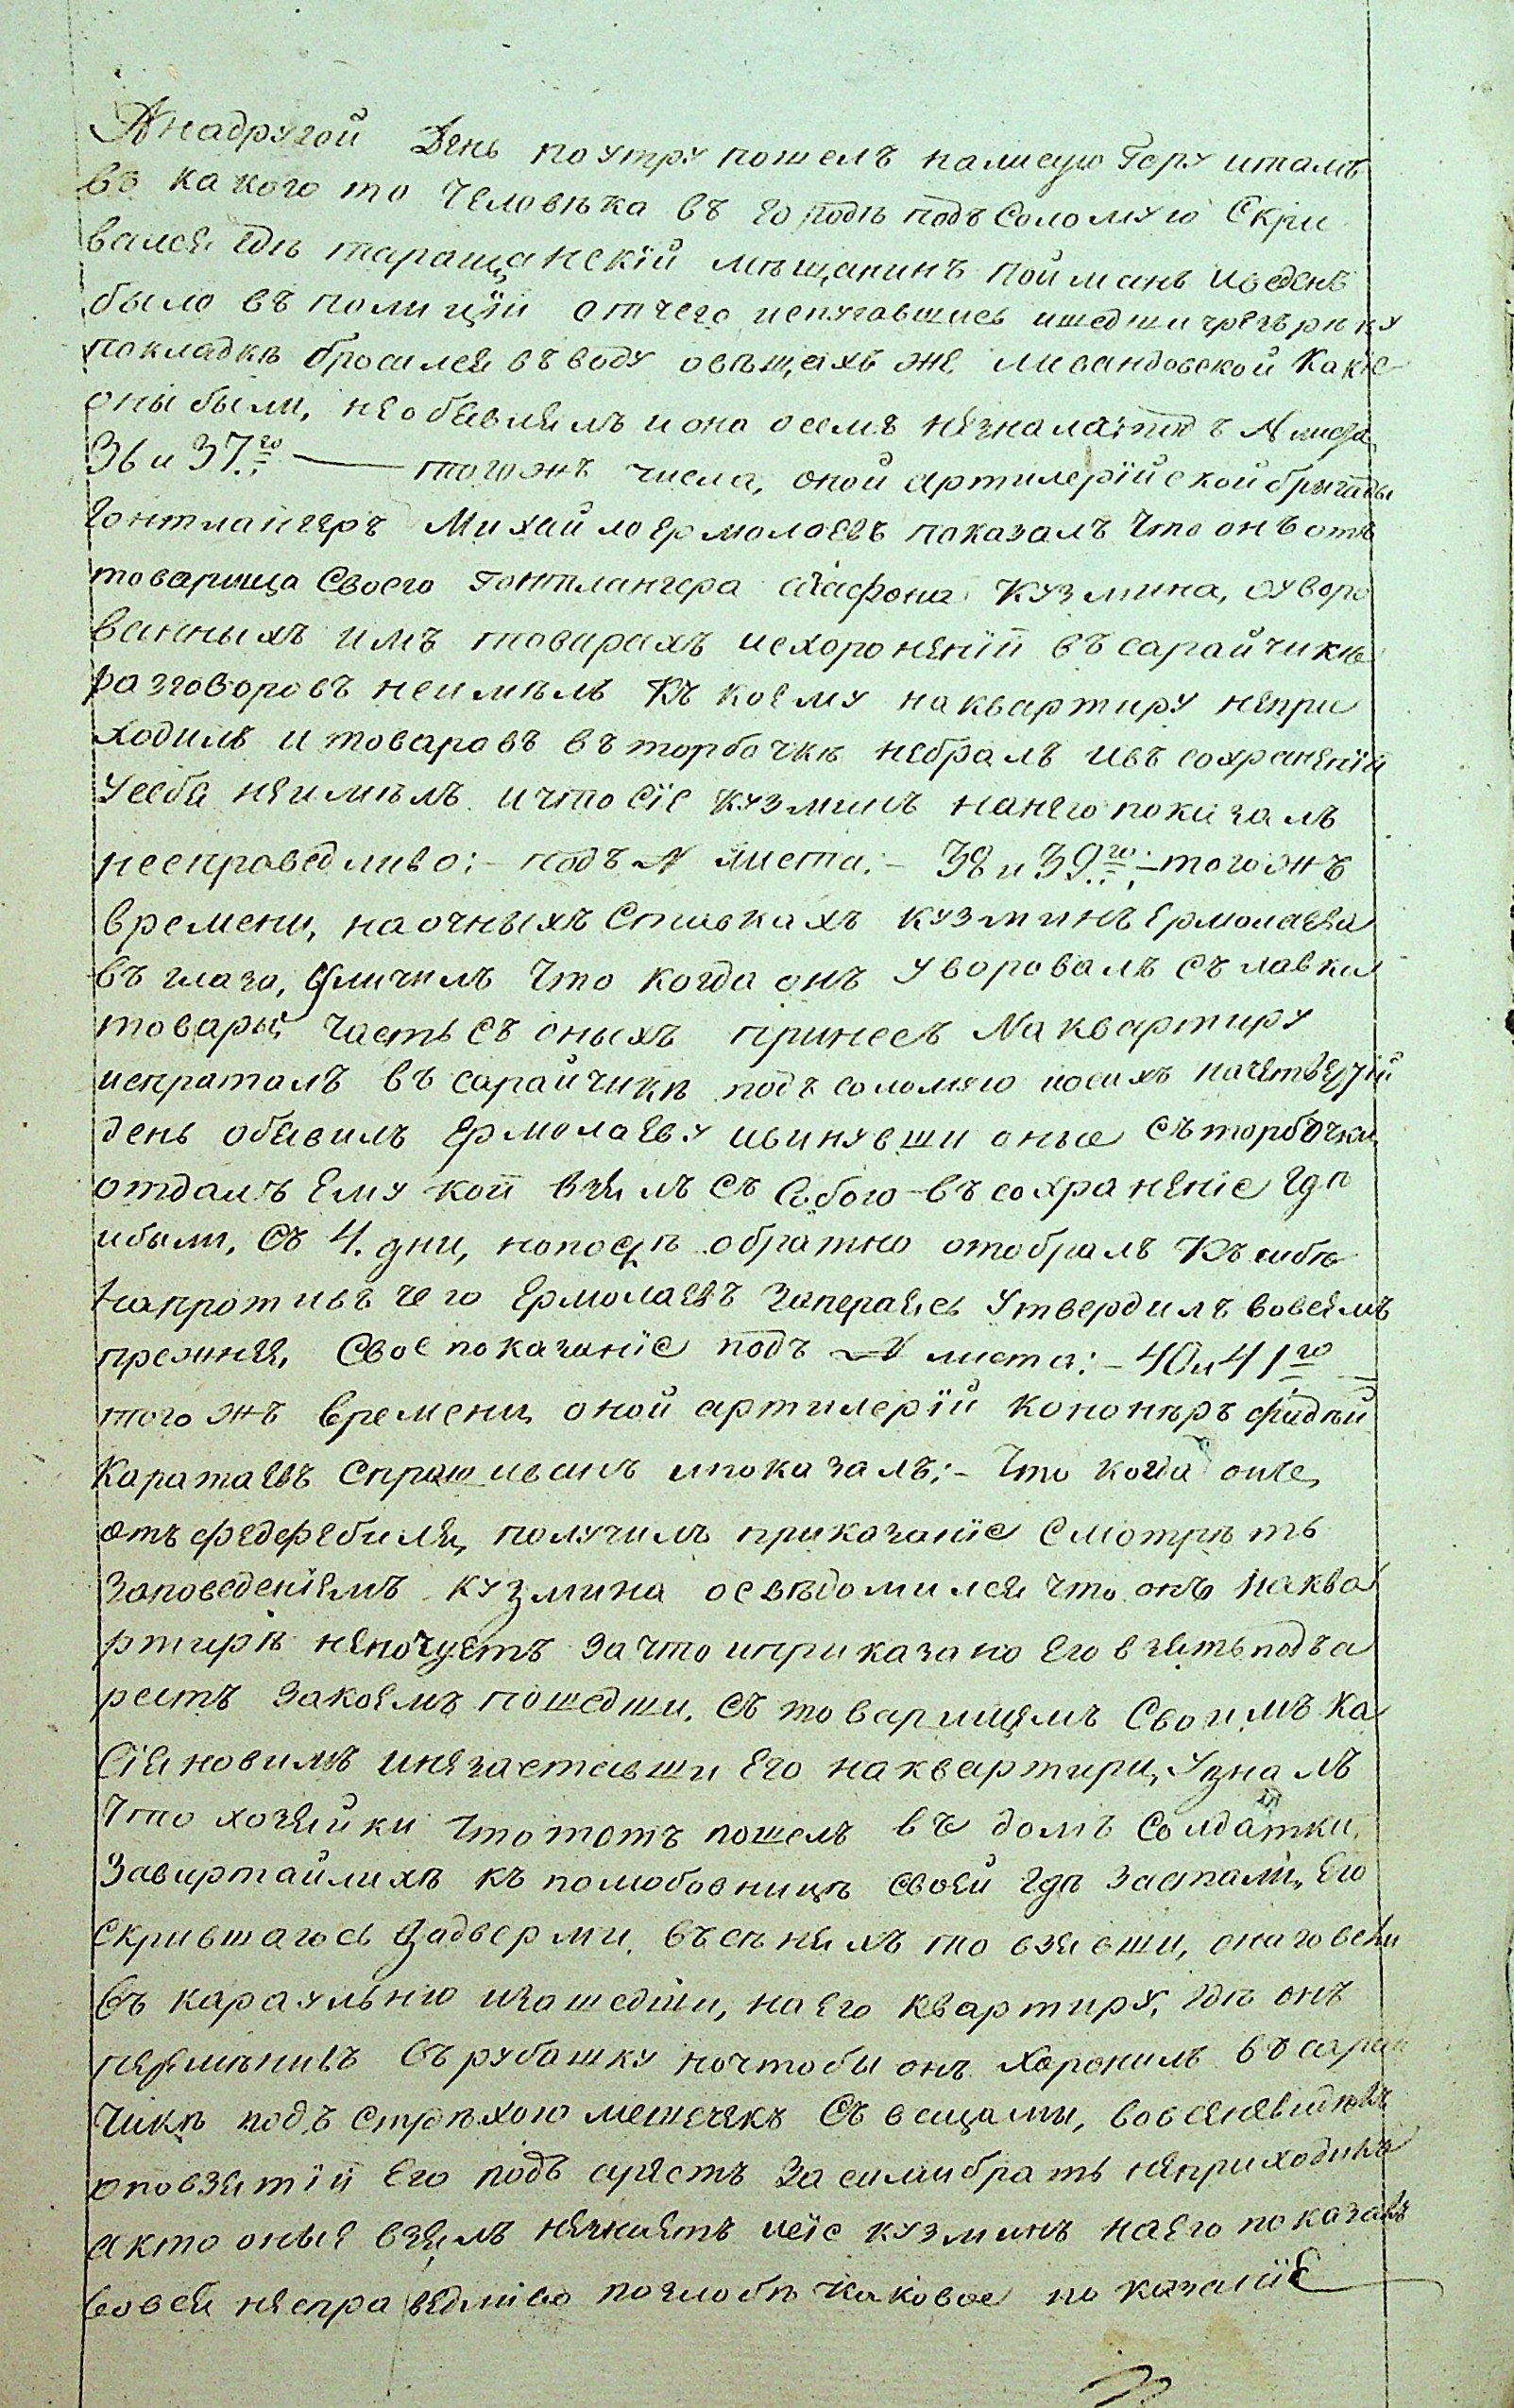 Анадругой День поутру пошелъ налисую Гору итамъ
въ какого то человѣка въ городѣ подъ Соломую Скри
вался гдѣ таращанскій мѣщанинъ пойманъ иведенъ
было въ полицїи отчего испугавшись ишедши чрезъ рѣку
покладкѣ бросился въ воду овѣщахъ же лисандовской Какїе
оны были, необявлялъ иона осемъ незнала: подъ № листа
36 и 37.го — тогожъ числа, оной артилерїйской бригады
Гонтлангеръ Михайло ермолаевъ показалъ Что онъ отъ
товарища Своего Гонтлангера Кузмина, оуворо
ванныхъ имъ товарахъ исхоронѣнїи въ сарайчикѣ
разговоровъ неимѣлъ Къ коему наквартиру непри
ходилъ и товаровъ въ торбочкѣ небралъ ивъ сохраненїи
Усебя неимѣлъ ичто сїе Кузминъ нанего показалъ
несправедливо:- подъ № листа:- 38 и 39.го:- тогожъ
времени, наочныхъ Ставкахъ кузминъ Ермолаева
въ глаза, Уличилъ Что когда онъ Уворовалъ съ лавки
товары часть съ оныхъ принесъ Наквартиру
испраталъ въ сарайчикѣ подъ соломою иосихъ начетвертїй
день обявилъ Ермолаеву ивинувши оные съ торбочки
отдалъ Ему кои взялъ съ Собою въ сохраненїе гдѣ
ибыли, Съ 4. дни, нопослѣ обратно отобралъ Къ себѣ
напротивъ чего Ермолаевъ Запераясь Утвердилъ вовсемъ
прежнее, Свое показанїе подъ № листа:- 40 и 41го
того жъ времени оной артилерїи Кононѣръ фадѣй
Каратаевъ Спрашиванъ ипоказалъ:- Что когда онъ
отъ федфебиля, получилъ приказанїе Смотрѣть
Заповеденїемъ Кузмина освѣдомился что онъ наква
ртирѣ неночуетъ за что иприказано Его взять подъ а
рестъ Закоемъ пошедши, съ товарищемъ Своимъ Ка
сїяновимъ инезаставши Его наквартири, Узналъ
Что хозяйки Что тотъ пошелъ въ домъ Солдатки
Завиртайлихѣ къ полюбовницѣ своей гдѣ Застали, Его
скрившагось Задверми въсѣняхъ то взявши, онаго вели
въ караульню изашедши, наего квартиру, гдѣ онъ
перемѣнивъ съ рубашку ночтобы онъ Хоронилъ въ сарай
чикѣ подъ стрѣхою мешечекъ Съ вещами, вовсеневидѣлъ
оповзятїи Его подъ арестъ За сими брать неприходилъ
акто оные взялъ незнаетъ исїе кузминъ наего показалъ
вовсей несправедливо позлобѣ каковое показанїе